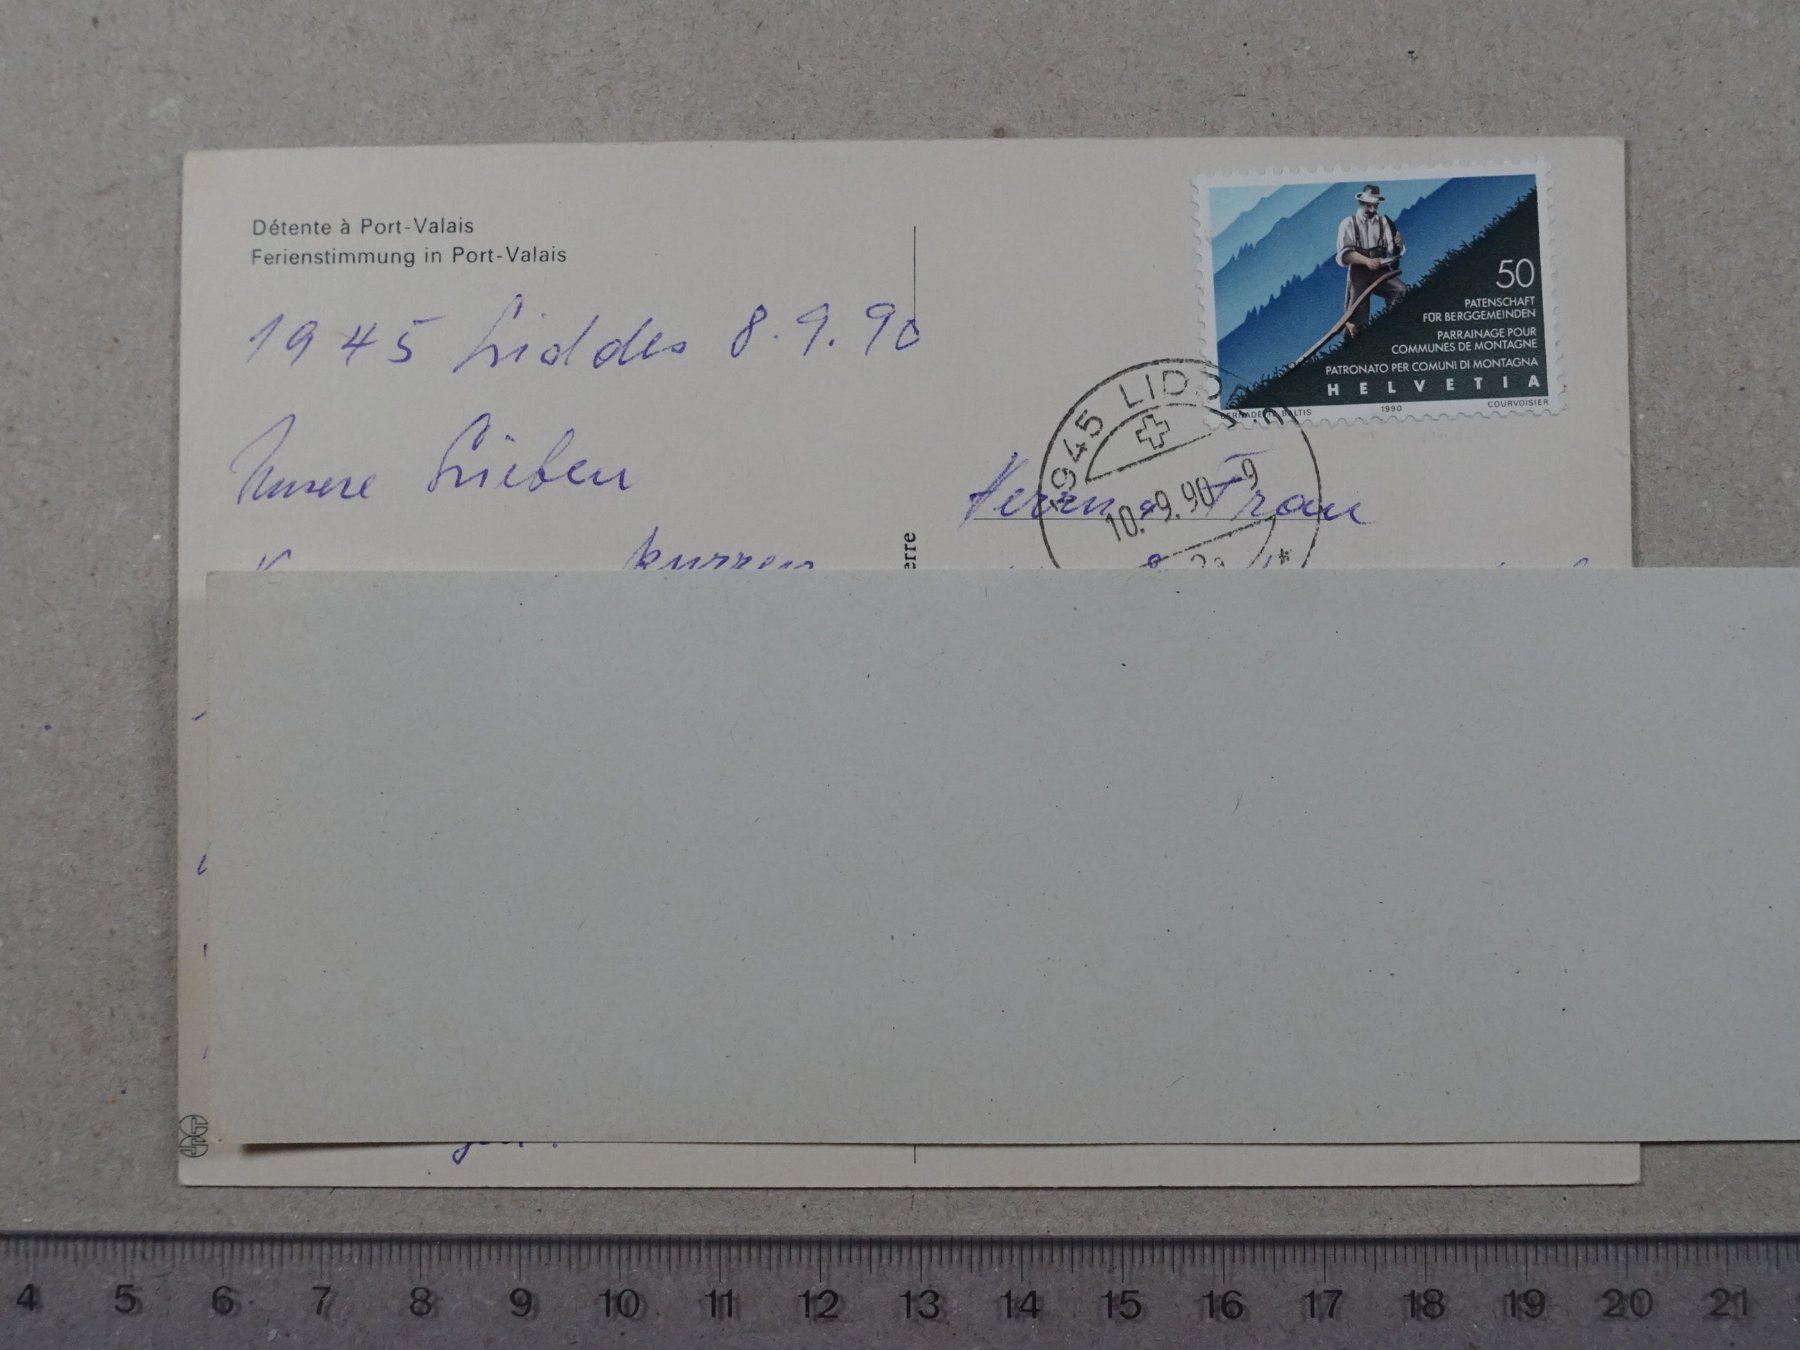 Détente à Port-Valais
Ferienstimmung in Port-Valais
1945 Liddes 8.9.90
Unsere Lieben
kurzen
50
PATENSCHAFT
FÜR BERGGEMEINDEN
PARRAINAGE POUR
COMMUNES DE MONTAGNE
PATRONATO PER COMUNI DI MONTAGNA
HELVETIA
BERNADETTE BALTIS 1990 COURVOISIER
1945
10.-9.90-9
Herrn u Frau
erre
4 5 6 7 8 9 10 11 12 13 14 15 16 17 18 19 20 21